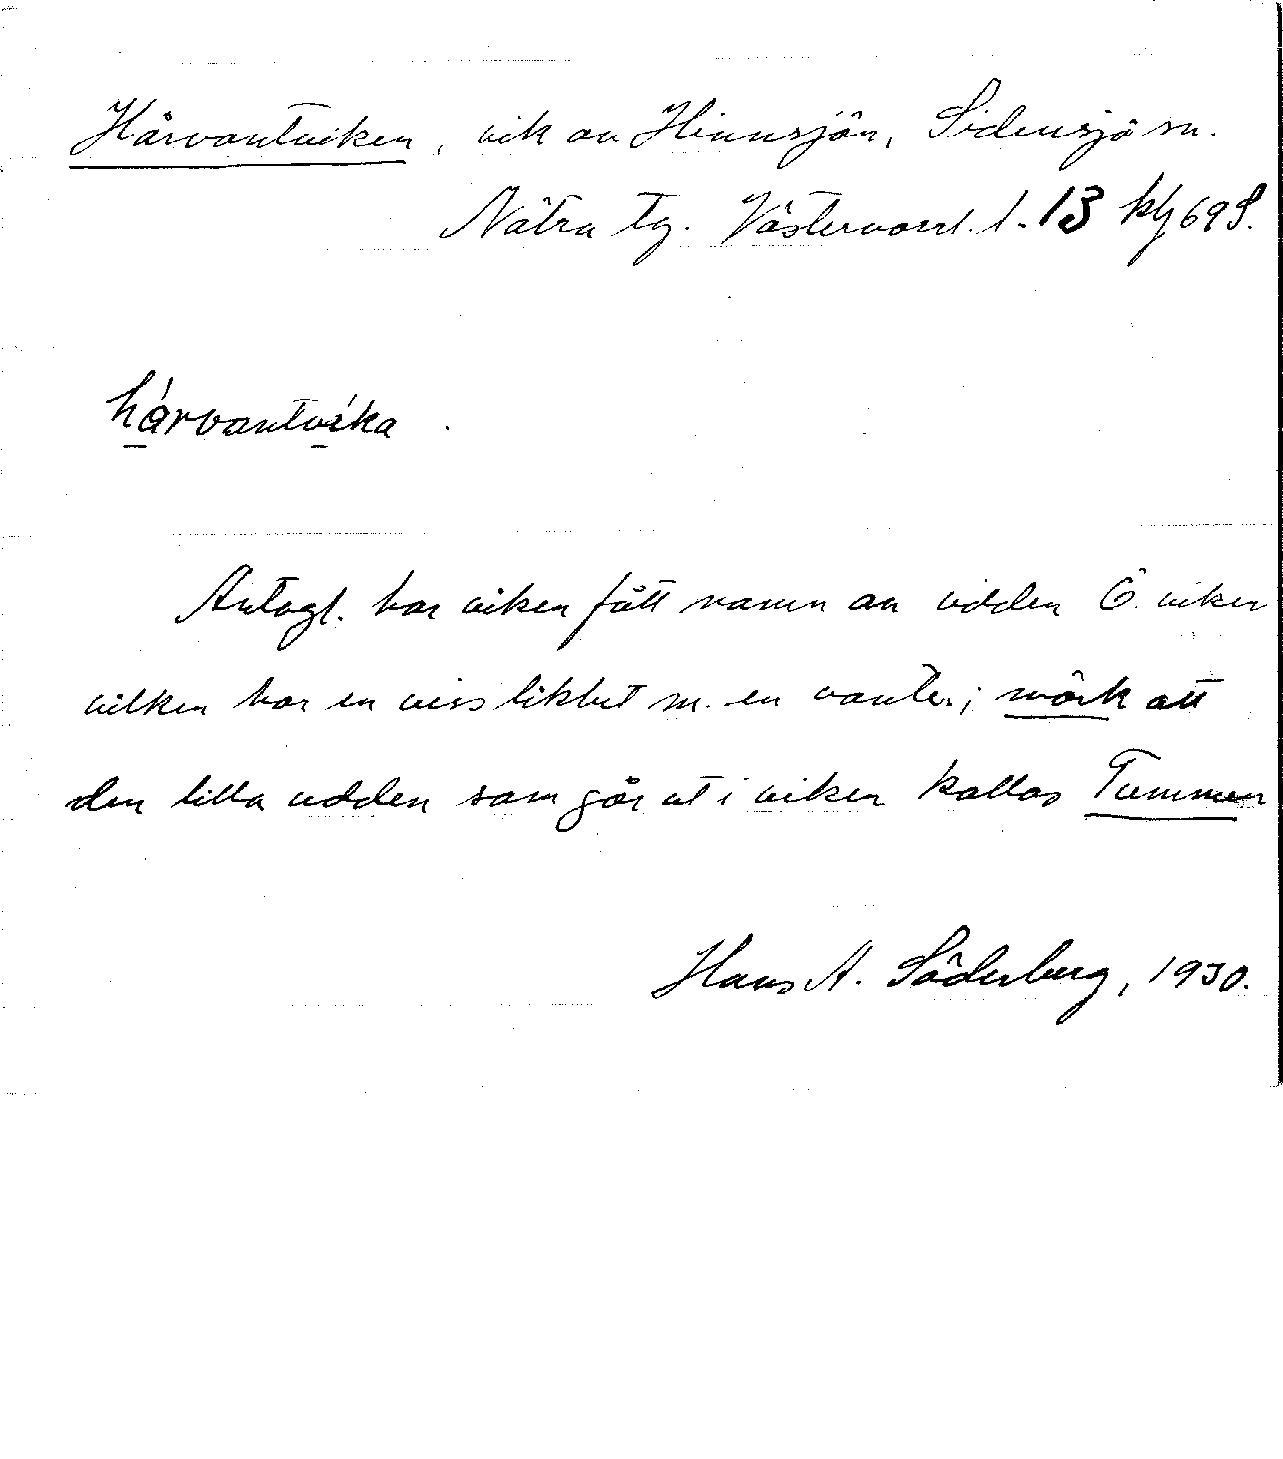 Hårvantviken, vik av Hinnsjön, Sidensjö sn.
Nätra tg. Västernorrl. l. 13
hárvantvíka
Antagl. har viken fått namn av udden Ö. viken
vilken har en viss likhet m. en vante; märk att
den lilla udden som går ut i viken kallas Tummen
Hans A. Söderberg, 1930.